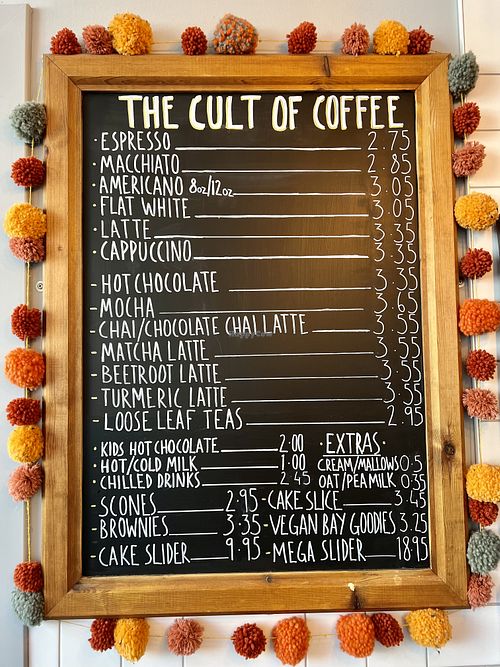 THE CULT OF COFFEE
· ESPRESSO 2.75
· MACCHIATO 2.85
· AMERICANO 8oz/12oz 3.05
· FLAT WHITE 3.05
· LATTE 3.35
· CAPPUCCINO 3.35
- HOT CHOCOLATE 3.35
- MOCHA 3.65
- CHAI/CHOCOLATE CHAI LATTE 3.55
- MATCHA LATTE 3.55
- BEETROOT LATTE 3.55
- TURMERIC LATTE 3.55
- LOOSE LEAF TEAS 2.95
· KIDS HOT CHOCOLATE 2.00
· HOT/COLD MILK 1.00
· CHILLED DRINKS 2.45
· EXTRAS ·
CREAM/MALLOWS 0.5
OAT/PEA MILK 0.35
- SCONES 2.95 - CAKE SLICE 3.45
- BROWNIES 3.35 - VEGAN BAY GOODIES 3.25
- CAKE SLIDER 9.95 - MEGA SLIDER 18.95